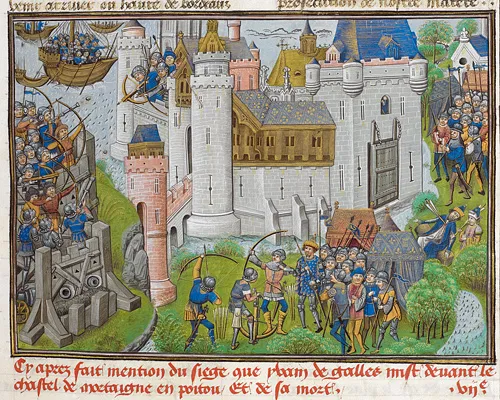 venir arriver ou havre de bordeaux prosecution de nostre matere
Cy aprez fait mention du siege que yvain de galles mist devant le
chastel de mortaigne en poitou / Et de sa mort. vii.